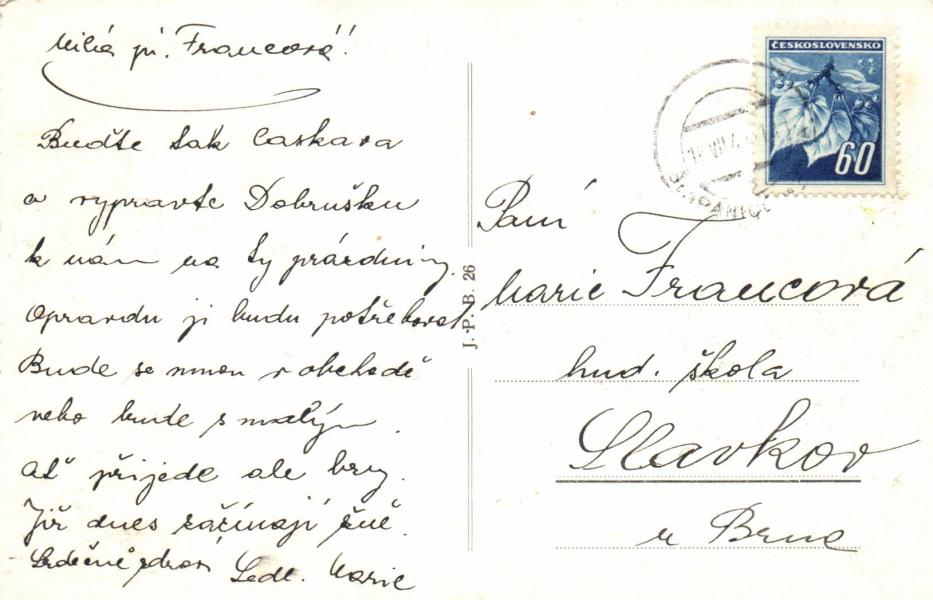 Milá pí. Francová!
Buďte tak laskava
a vypravte Dobrušku
k nám na ty prázdniny.
Opravdu ji budu potřebovat.
Bude se mnou v obchodě
nebo bude s malým.
Ať přijede ale brzy.
Již dnes začínají žně.
Srdečně zdraví Sedl. Marie
J.·P.·B. 26
ČESKOSLOVENSKO
60
Paní
Marie Francová
hud. škola
Slavkov
u Brna